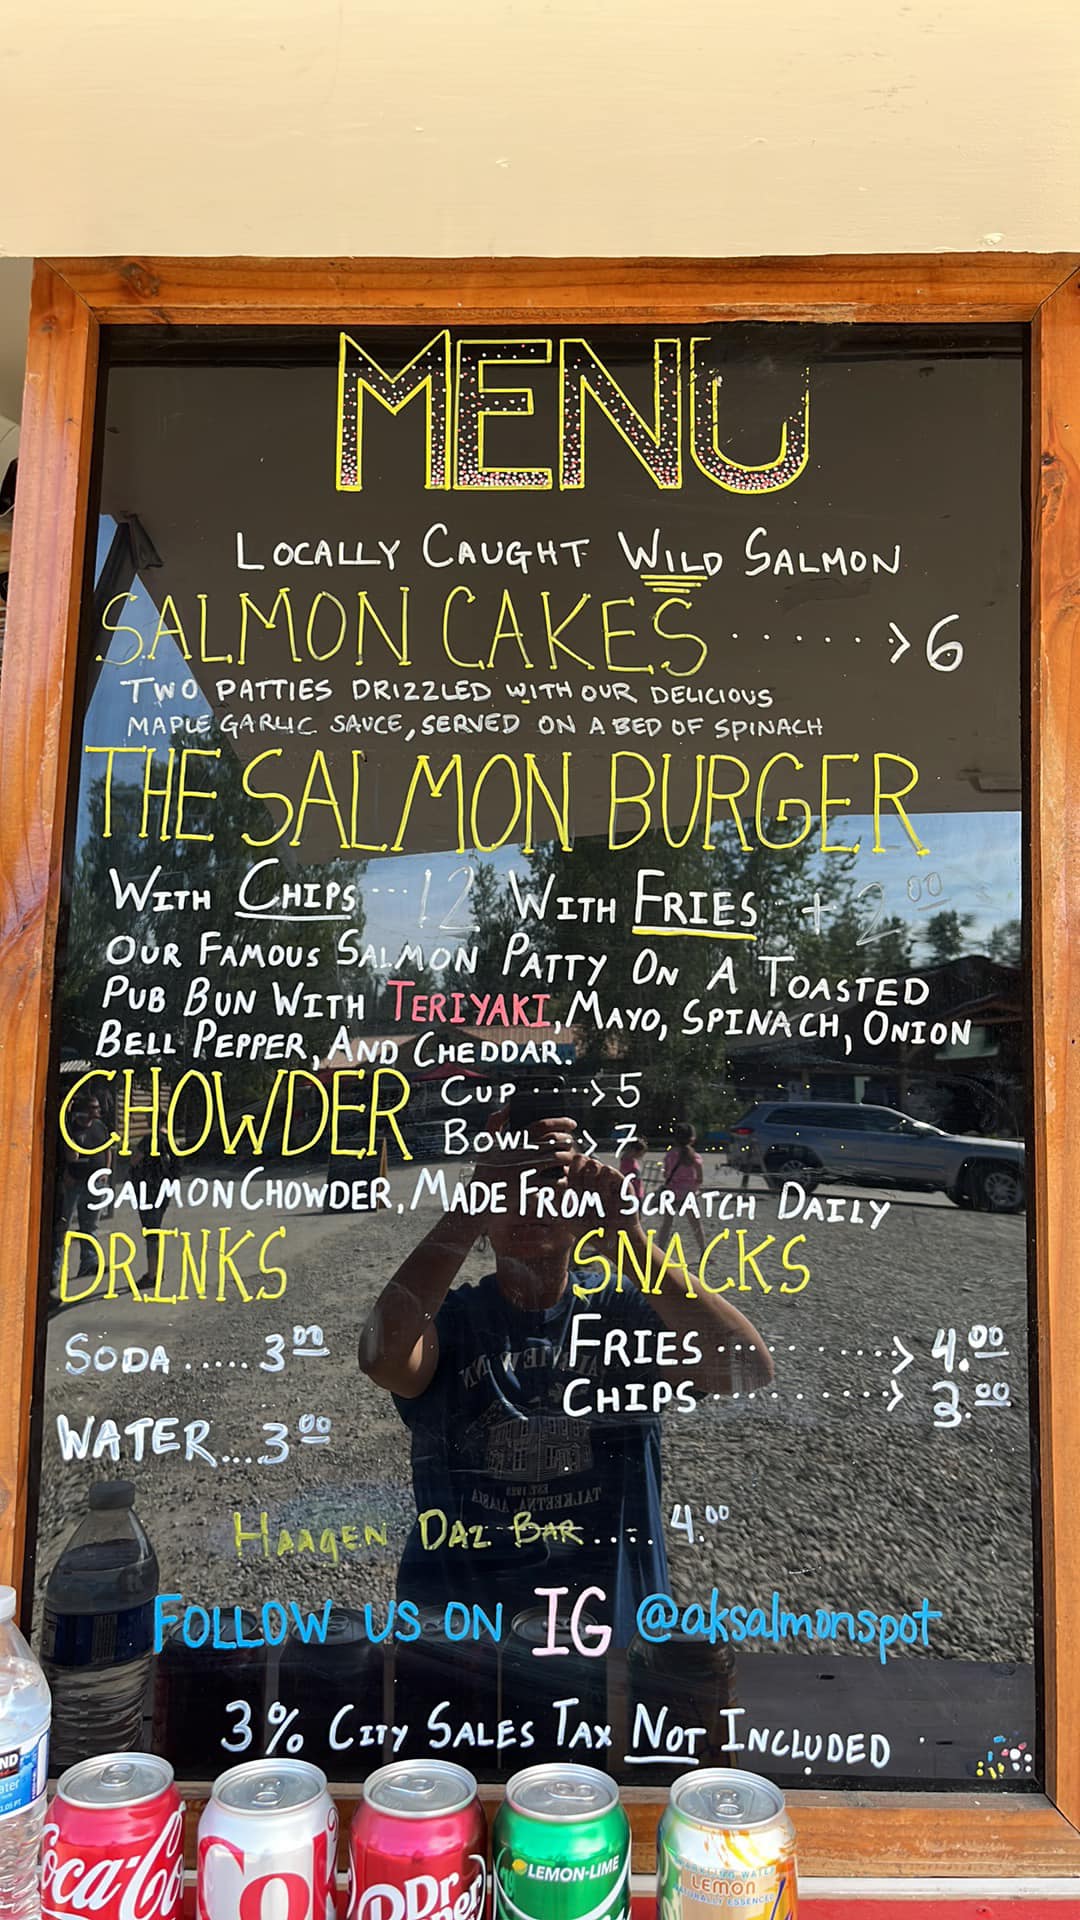 MENU
LOCALLY CAUGHT WILD SALMON
SALMON CAKES ......> 6
TWO PATTIES DRIZZLED WITH OUR DELICIOUS
MAPLE GARLIC SAUCE, SERVED ON A BED OF SPINACH
THE SALMON BURGER
WITH CHIPS ... 12 WITH FRIES + 2.00
OUR FAMOUS SALMON PATTY ON A TOASTED
PUB BUN WITH TERIYAKI, MAYO, SPINACH, ONION
BELL PEPPER, AND CHEDDAR.
CHOWDER CUP ....> 5
BOWL ..> 7
SALMON CHOWDER, MADE FROM SCRATCH DAILY
DRINKS
SODA ...... 3.00
WATER .... 3.00
SNACKS
FRIES ..........> 4.00
CHIPS ..........> 3.00
HAAGEN DAZ BAR .... 4.00
FOLLOW US ON IG @aksalmonspot
3% CITY SALES TAX NOT INCLUDED
Coca-Co
Co
DR
LEMON-LIME
SPARKLING WATER
LEMON
NATURALLY ESSENCED